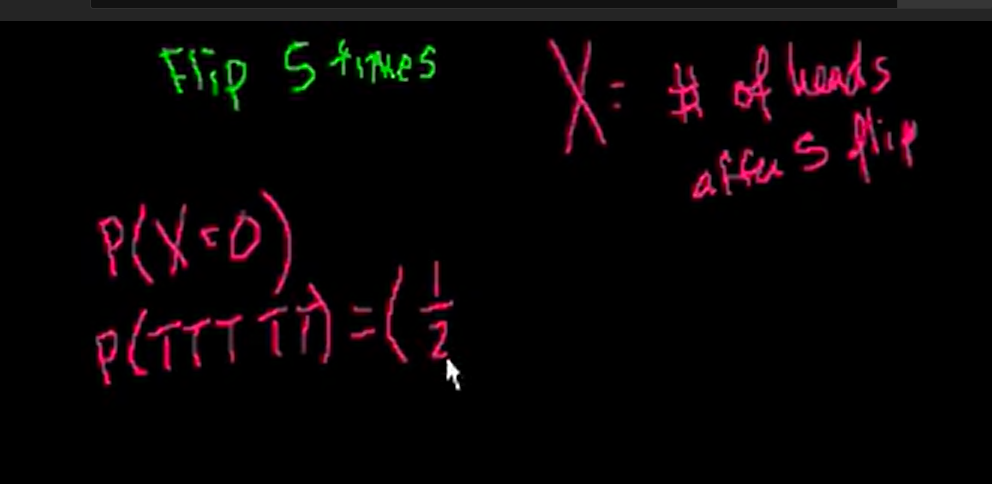 Flip 5 times
X = # of heads
after 5 flip
P(X=0)
P(TTTTT) = (1/2